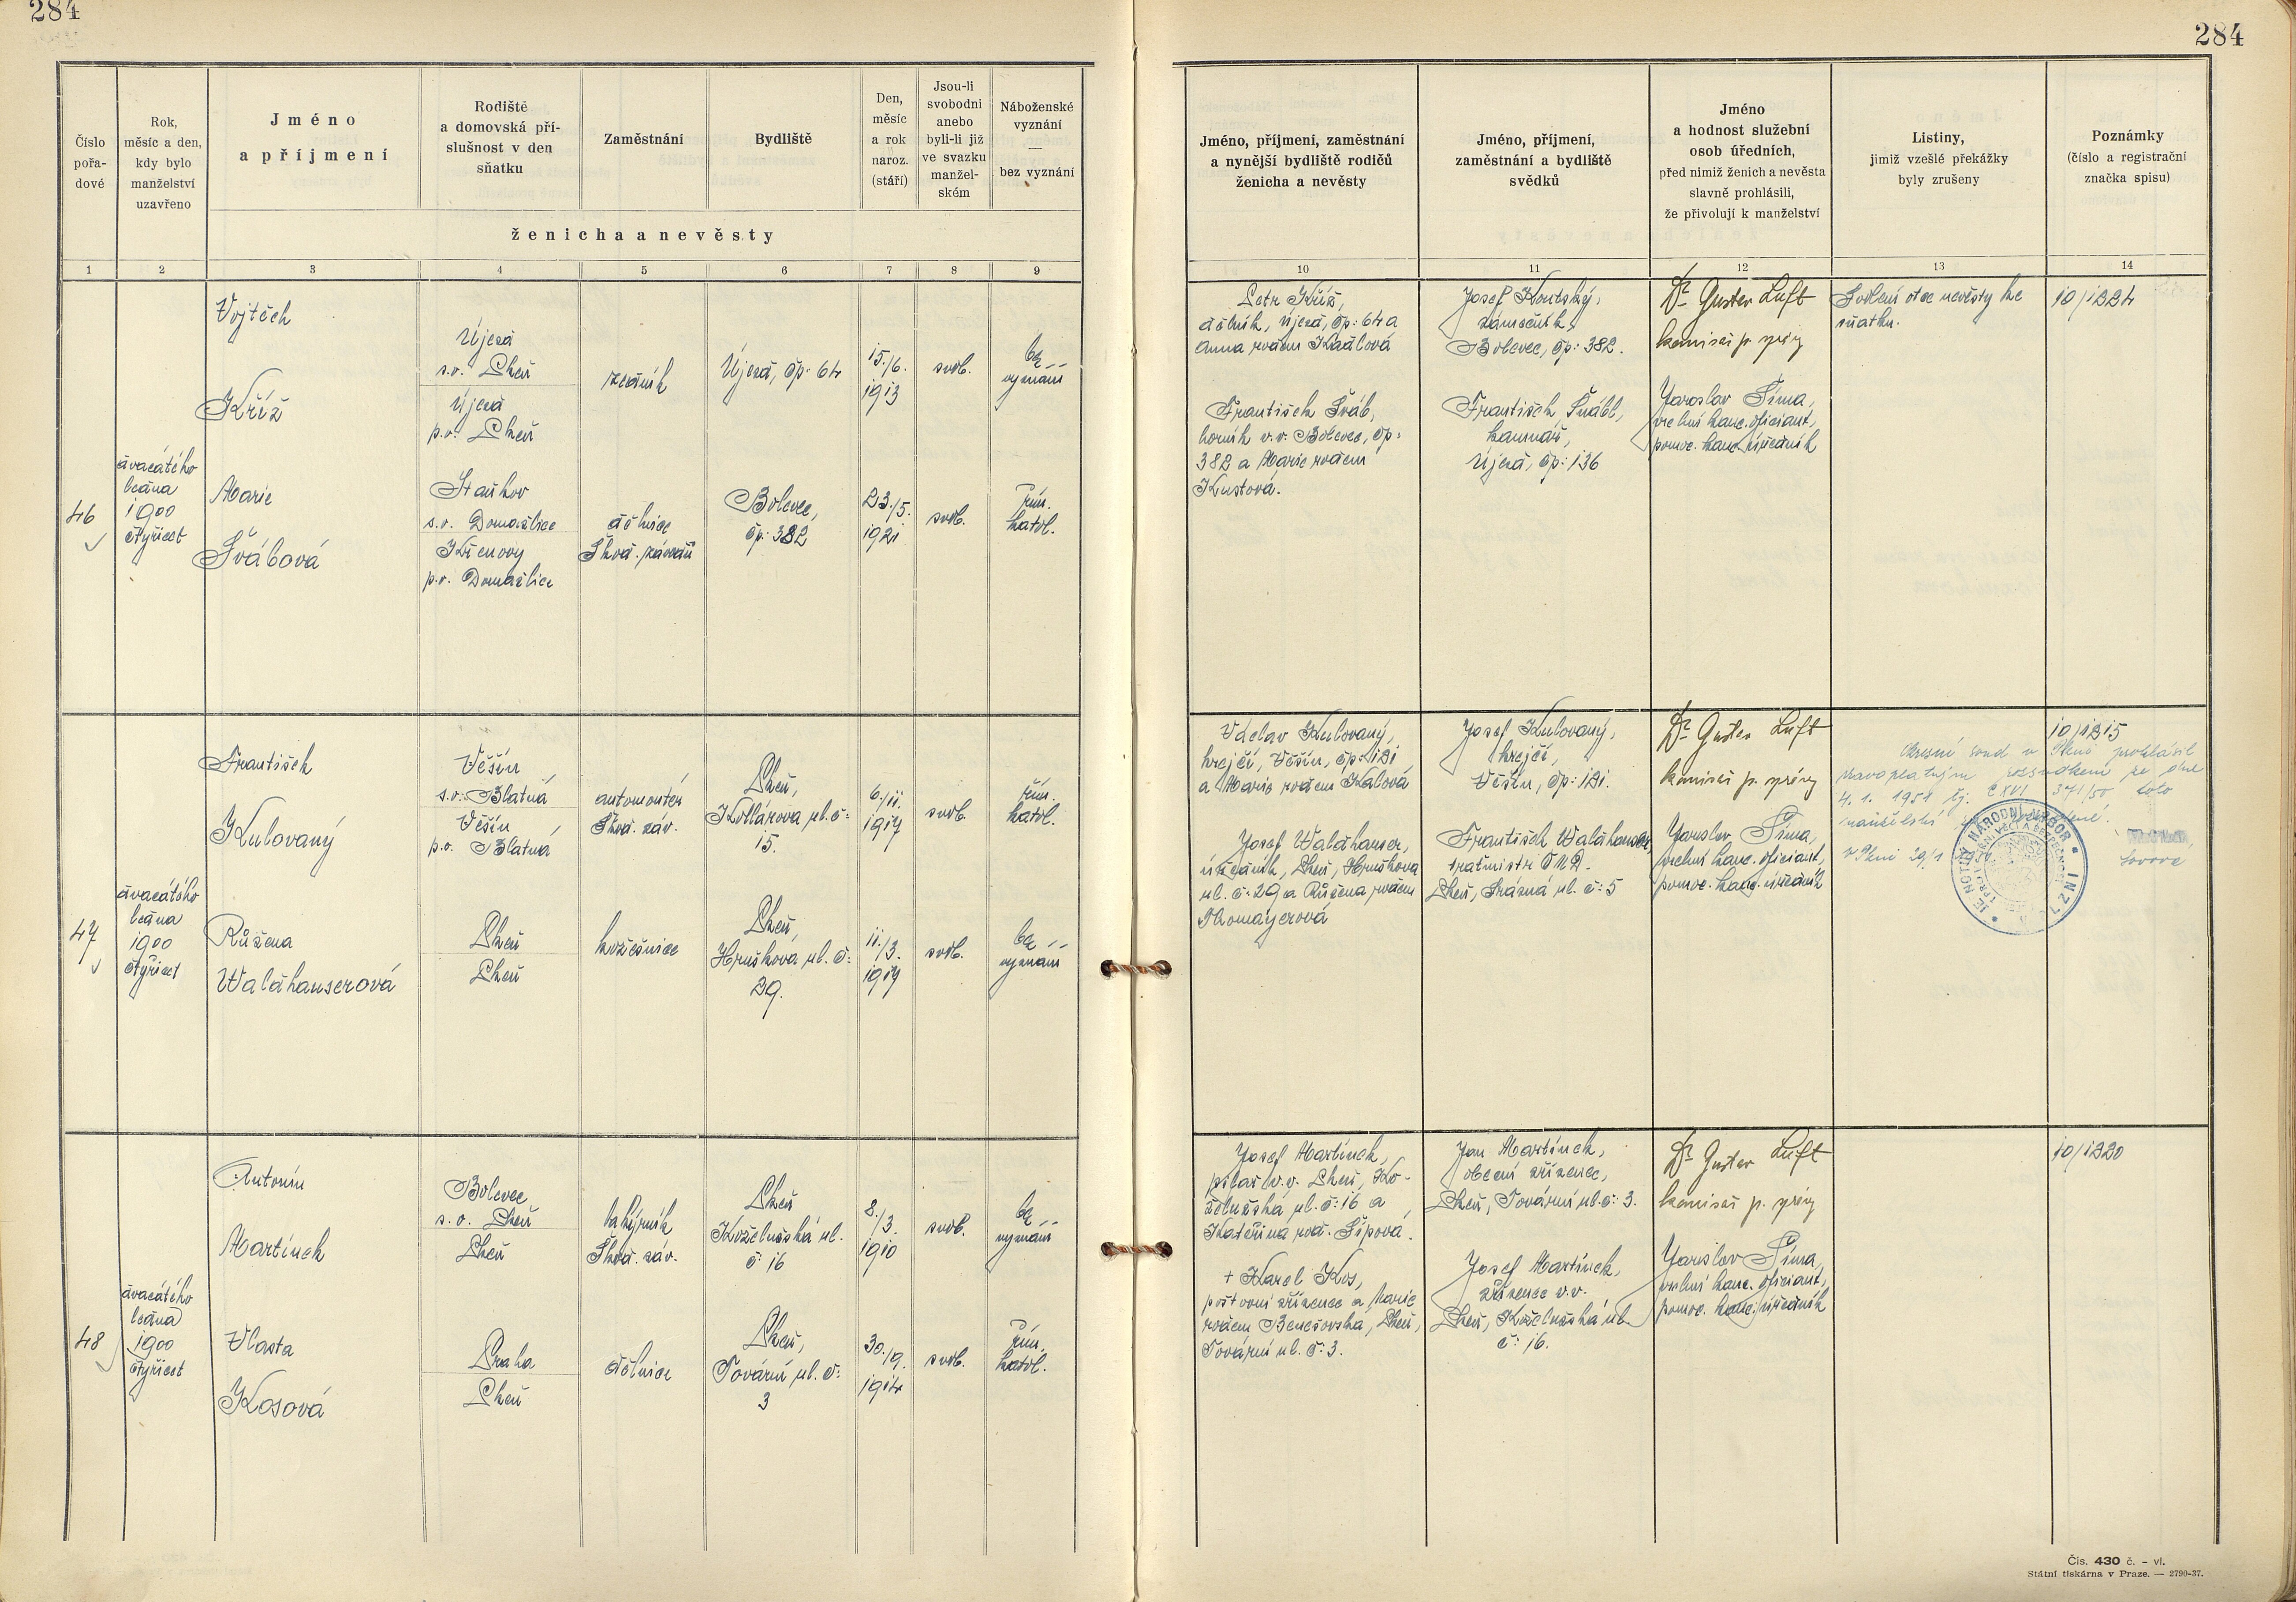 284
284
Číslo pořa- dové
Rok, měsíc a den, kdy bylo manželství uzavřeno
Jméno a příjmení
Rodiště a domovská pří- slušnost v den sňatku
Zaměstnání
Bydliště
Den, měsíc a rok naroz. (stáří)
Jsou-li svobodni anebo byli-li již ve svazku manžel- ském
Náboženské vyznání — bez vyznání
ženicha a nevěsty
Jméno, příjmení, zaměstnání a nynější bydliště rodičů ženicha a nevěsty
Jméno, příjmení, zaměstnání a bydliště svědků
Jméno a hodnost služební osob úředních, před nimiž ženich a nevěsta slavně prohlásili, že přivolují k manželství
Listiny, jimiž vzešlé překážky byly zrušeny
Poznámky (číslo a registrační značka spisu)
1 2 3 4 5 6 7 8 9 10 11 12 13 14
46
dvacátého
ledna
1900
čtyřicet
Vojtěch
Kříž
Újezd
s.o. Plzeň
Újezd
p.o. Plzeň
zedník
Újezd, čp: 64
15./6.
1913
svob.
bez
vyznání
Marie
Švábová
Staňkov
s.o. Domažlice
Křenovy
p.o. Domažlice
dělnice
Škod. závodů
Bolevec,
čp: 382
23./5.
1921
svob.
řím.
katol.
Petr Kříž,
dělník, Újezd, čp: 64 a
Anna rozen Kadlová
František Šváb,
horník v.v. Bolevec, čp:
382 a Marie rozen
Kustová.
Josef Koutský,
zámečník,
Bolevec, čp: 382.
František Šnábl,
kamnář,
Újezd, čp: 136
Dr Gustav Luft
komisař p. správy
Jaroslav Šíma,
vrchní kanc. oficiant,
pomoc. kanc. úředník
Svolení otce nevěsty ke
sňatku.
10/1224
47
dvacátého
ledna
1900
čtyřicet
František
Kulovaný
Věšín
s.o. Blatná
Věšín
p.o. Blatná
automontér
Škod. záv.
Plzeň,
Kollárova ul. č:
15.
6./11.
1917
svob.
řím.
katol.
Růžena
Waldhauserová
Plzeň
Plzeň
kožešnice
Plzeň,
Hruškova ul. č:
29.
11./3.
1917
svob.
bez
vyznání
Václav Kulovaný,
krejčí, Věšín, čp: 121
a Marie rozen Kalová
Josef Waldhauser,
úředník, Plzeň, Hruškova
ul. č: 29 a Růžena rozen
Thomayerová
Josef Kulovaný,
krejčí,
Věšín, čp: 121.
František Waldhauser,
Plzeň, Krásná ul. č: 5
Dr Gustav Luft
komisař p. správy
Jaroslav Šíma,
vrchní kanc. oficiant,
pomoc. kanc. úředník
10/1215
Okresní soud v Plzni prohlásil
pravoplatným rozsudkem ze dne
4. 1. 1951 čj: CXVI 371/50 toto
manželství
V Plzni 29/1
NÁRODNÍ VÝBOR
48
dvacátého
ledna
1900
čtyřicet
Antonín
Martínek
Bolevec
s.o. Plzeň
Plzeň
lakýrník
Škod. záv.
Plzeň
Koželužská ul.
č: 16
8./3.
1910
svob.
bez
vyznání
Vlasta
Kosová
Praha
Plzeň
dělnice
Plzeň,
Tovární ul. č:
3
30./9.
1914
svob.
řím.
katol.
Josef Martínek,
pilař v.v. Plzeň, Ko-
želužská ul. č: 16 a
Kateřina roz. Šípová.
+ Karel Kos,
poštovní zřízenec a Marie
rozen Benešovská, Plzeň,
Tovární ul. č: 3.
Jan Martínek,
obecní zřízenec,
Plzeň, Tovární ul. č: 3.
Josef Martínek,
zřízenec v.v.
Plzeň, Koželužská ul.
č: 16.
Dr Gustav Luft
komisař p. správy
Jaroslav Šíma,
vrchní kanc. oficiant,
pomoc. kanc. úředník
10/1220
Čís. 430 č. – vl.
Státní tiskárna v Praze. — 2790-37.